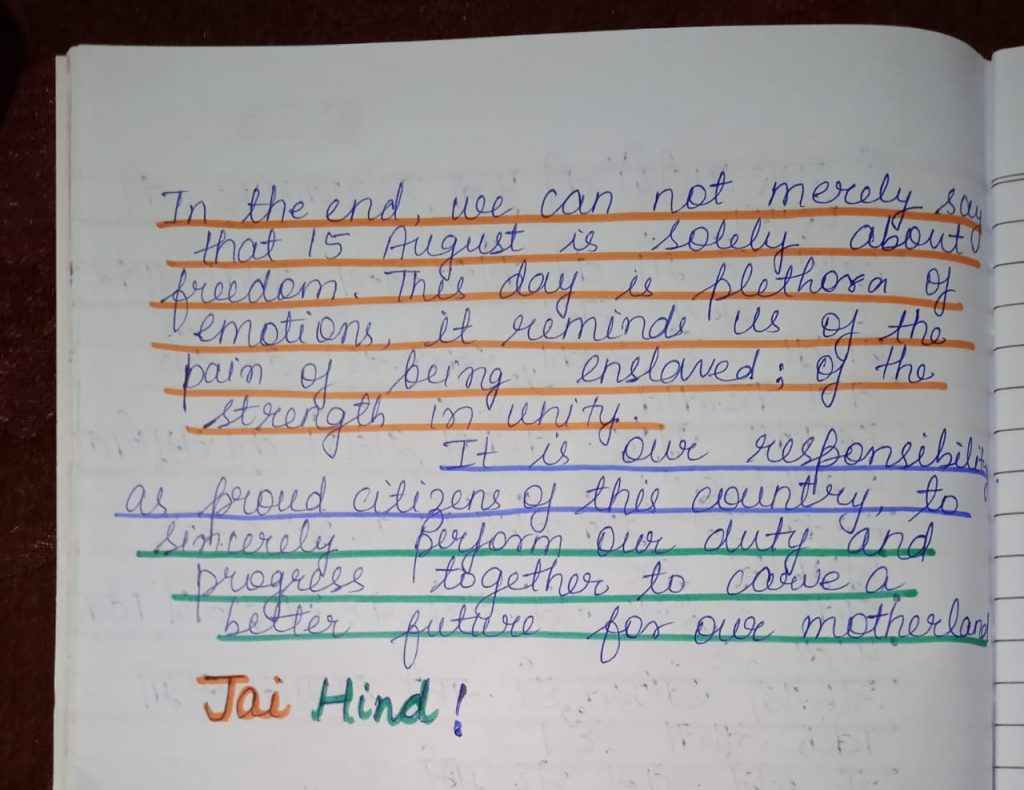 In the end, we can not merely say
that 15 August is solely about
freedom. This day is plethora of
emotions, it reminds us of the
pain of being enslaved; of the
strength in unity.
It is our responsibility
as proud citizens of this country, to
sincerely perform our duty and
progress together to carve a
better future for our motherland
Jai Hind!